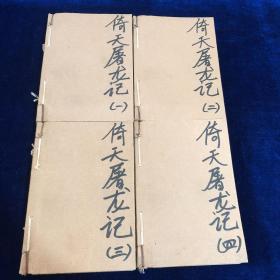 倚天屠龙记
(一)
倚天屠龙记
(二)
倚天屠龙记
(三)
倚天屠龙记
(四)